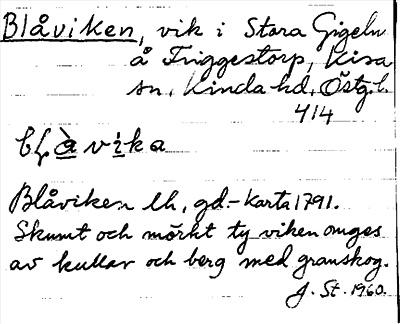 Blåviken, vik i Stora Gigeln
å Triggestorp, Kisa
sn, Kinda hd, Östg. l.
414
Blåviken lh, gd-karta 1791.
Skumt och mörkt ty viken omges
av kullar och berg med granskog.
J. St. 1960.